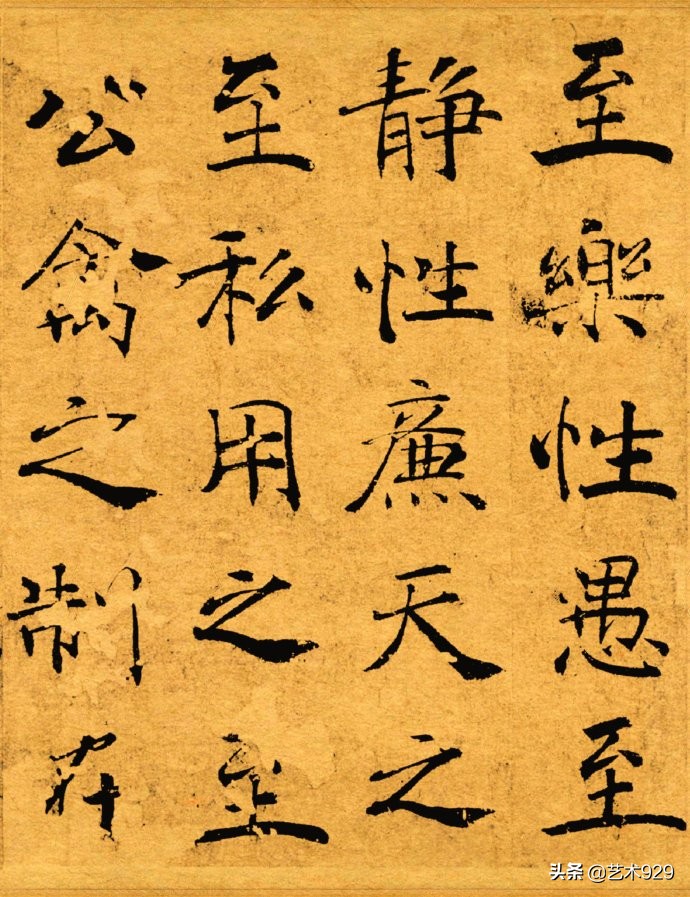 至樂性愚至
静性廉天之
至私用之至
公禽之制在
头条 @艺术929